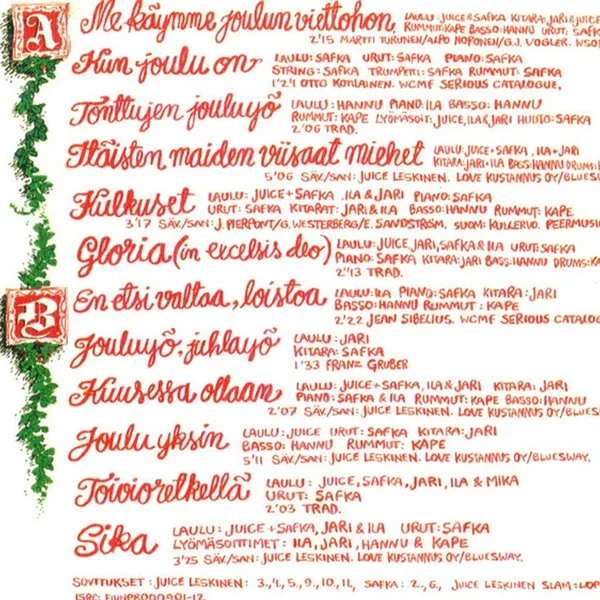 A
Me käymme joulun viettohon.
LAULU: JUICE & SAFKA KITARA: JARI & JUICE
RUMMUT: KAPE BASSO: HANNU URUT: SAFKA
2'15 MARTTI TURUNEN/ALPO NOPONEN/G.J. VOGLER.
Kun joulu on
LAULU: SAFKA URUT: SAFKA PIANO: SAFKA
STRING: SAFKA TRUMPETTI: SAFKA RUMMUT: SAFKA
1'24 OTTO KOTILAINEN. WCMF SERIOUS CATALOGUE.
Tonttujen jouluyö
LAULU: HANNU PIANO: ILA BASSO: HANNU
RUMMUT: KAPE LYÖMÄSOIT: JUICE, ILA & JARI HUUTO: SAFKA
2'06 TRAD.
Itäisten maiden viisaat miehet
LAULU: JUICE + SAFKA, ILA + JARI
KITARA: JARI + ILA BASS: HANNU DRUMS:
5'06 SÄV./SAN: JUICE LESKINEN. LOVE KUSTANNUS OY/BLUES
Kulkuset
LAULU: JUICE + SAFKA, ILA & JARI PIANO: SAFKA
URUT: SAFKA KITARAT: JARI & ILA BASSO: HANNU RUMMUT: KAPE
3'17 SÄV/SAN: J. PIERPONT/G. WESTERBERG/E. SANDSTRÖM. SUOM: KULLERVO. PEERMUSIC
Gloria (in excelsis deo)
LAULU: JUICE, JARI, SAFKA & ILA URUT: SAFKA
PIANO: SAFKA KITARA: JARI BASS: HANNU DRUMS: KA
2'13 TRAD.
B
En etsi valtaa, loistoa
LAULU: ILA PIANO: SAFKA KITARA: JARI
BASSO: HANNU RUMMUT: KAPE
2'22 JEAN SIBELIUS. WCMF SERIOUS CATALOG
Jouluyö, juhlayö
LAULU: JARI
KITARA: SAFKA
1'33 FRANZ GRUBER
Kuusessa ollaan
LAULU: JUICE + SAFKA, ILA & JARI KITARA: JARI
PIANO: SAFKA & ILA RUMMUT: KAPE BASSO: HANNU
2'07 SÄV./SAN: JUICE LESKINEN. LOVE KUSTANNUS OY/BLUES
Joulu yksin
LAULU: JUICE URUT: SAFKA KITARA: JARI
BASSO: HANNU RUMMUT: KAPE
5'11 SÄV./SAN: JUICE LESKINEN. LOVE KUSTANNUS OY/BLUESWAY.
Toivioretkellä
LAULU: JUICE, SAFKA, JARI, ILA & MIKA
URUT: SAFKA
2'03 TRAD.
Sika
LAULU: JUICE + SAFKA, JARI & ILA URUT: SAFKA
LYÖMÄSOITTIMET: ILA, JARI, HANNU & KAPE
3'25 SÄV./SAN: JUICE LESKINEN. LOVE KUSTANNUS OY/BLUESWAY.
SOVITUKSET: JUICE LESKINEN: 3., 4., 5., 9., 10., 11., SAFKA: 2., 6., JUICE LESKINEN SLAM: